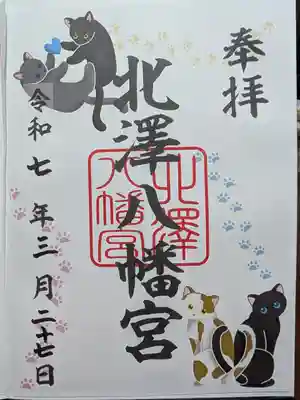 奉拝
北澤八幡宮
北澤八幡宮
令和七年三月二十七日